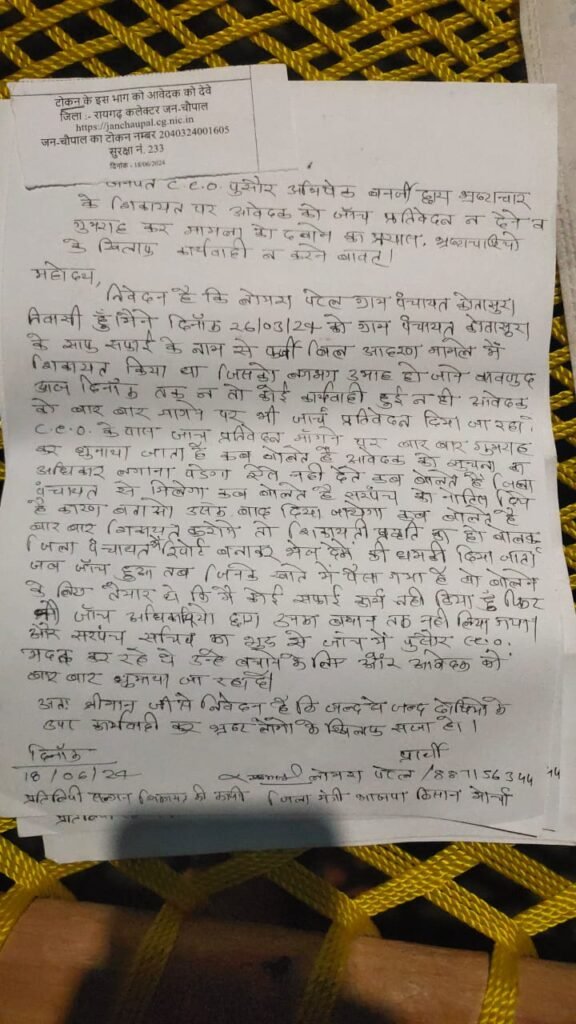 टोकन के इस भाग को आवेदक को देवे
जिला :- रायगढ़ कलेक्टर जन-चौपाल
https://janchaupal.cg.nic.in
जन-चौपाल का टोकन नम्बर 2040324001605
सुरक्षा नं. 233
दिनांक - 18/06/2024
जनपद C.E.O. पुसौर अभिषेक बनर्जी द्वारा भ्रष्टाचार
के शिकायत पर आवेदक को जाँच प्रतिवेदन न देने व
गुमराह कर मामला को दबाने का प्रयास, भ्रष्टाचारियो
के खिलाफ कार्यवाही न करने बाबत्।
महोदय,
निवेदन है कि पटेल ग्राम पंचायत कोतासुरा
निवासी हुँ मैंने दिनाँक 26/03/24 को ग्राम पंचायत कोतासुरा
के साफ सफाई के नाम से फर्जी बिल आहरण मामले में
शिकायत किया था जिसको लगभग माह हो जाने बावजुद
आज दिनाँक तक न तो कोई कार्यवाही हुई न ही आवेदक
को बार बार मांगने पर भी जांच प्रतिवेदन दिया जा रहा
C.E.O. के पास जाँच प्रतिवेदन माँगने पर बार बार गुमराह
कर घुमाया जाता है कब बोलते है आवेदक को सूचना का
अधिकार लगाना पड़ेगा ऐसे नही देते कब बोलते है जिला
पंचायत से मिलेगा कब बोलते है सरपंच को नोटिस दिये
है कारण बताओ उसके बाद दिया जायेगा कब बोलते है
बार बार शिकायत करोगे तो शिकायती प्रवृति का हो बोलकर
जिला पंचायत में रिपोर्ट बनाकर भेज देने की धमकी दिया जाता
जब जाँच हुआ तब जिनके खाते में पैसा गया है वो बोलने
के लिए तैयार थे कि मैं कोई सफाई कार्य नही किया हुँ फिर
भी जाँच अधिकारियो द्वारा उनका बयान तक नही लिया गया।
और सरपंच सचिव का जांच में पुसौर C.E.O.
मदद कर रहे थे उन्हे बचाने के लिए और आवेदक को
बार बार घुमाया जा रहा है।
अतः श्रीमान जी से निवेदन है कि जल्द से जल्द दोषियो के
उपर कार्यवाही कर भ्रष्ट लोगो के खिलाफ सजा हो।
दिनाँक प्रार्थी
18/06/24 पटेल
प्रतिलिपी संलग्न शिकायत की कापी जिला मंत्री भाजपा किसान मोर्चा